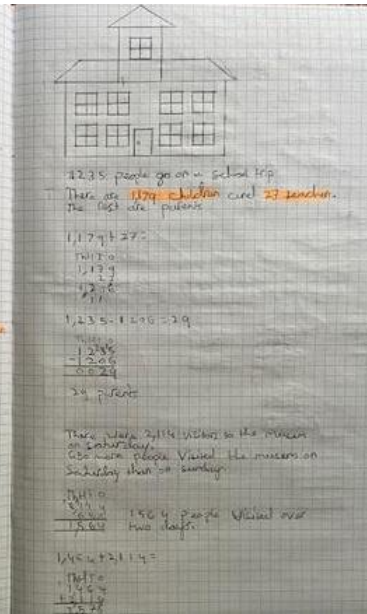 1235 people go on a school trip.
There are 1,179 children and 27 teachers.
The rest are parents
1,179 + 27 =
Th H T O
1,179
27
1,206
1 1
1,235 - 1206 = 29
Th H T O
1235
- 1206
0029
29 parents
There were 2,114 visitors to the museum
on Saturday.
650 more people visited the museum on
Saturday than on Sunday.
Th H T O
650
people visited over
two days.
+ 2114 =
Th H T O
1464
+ 2114